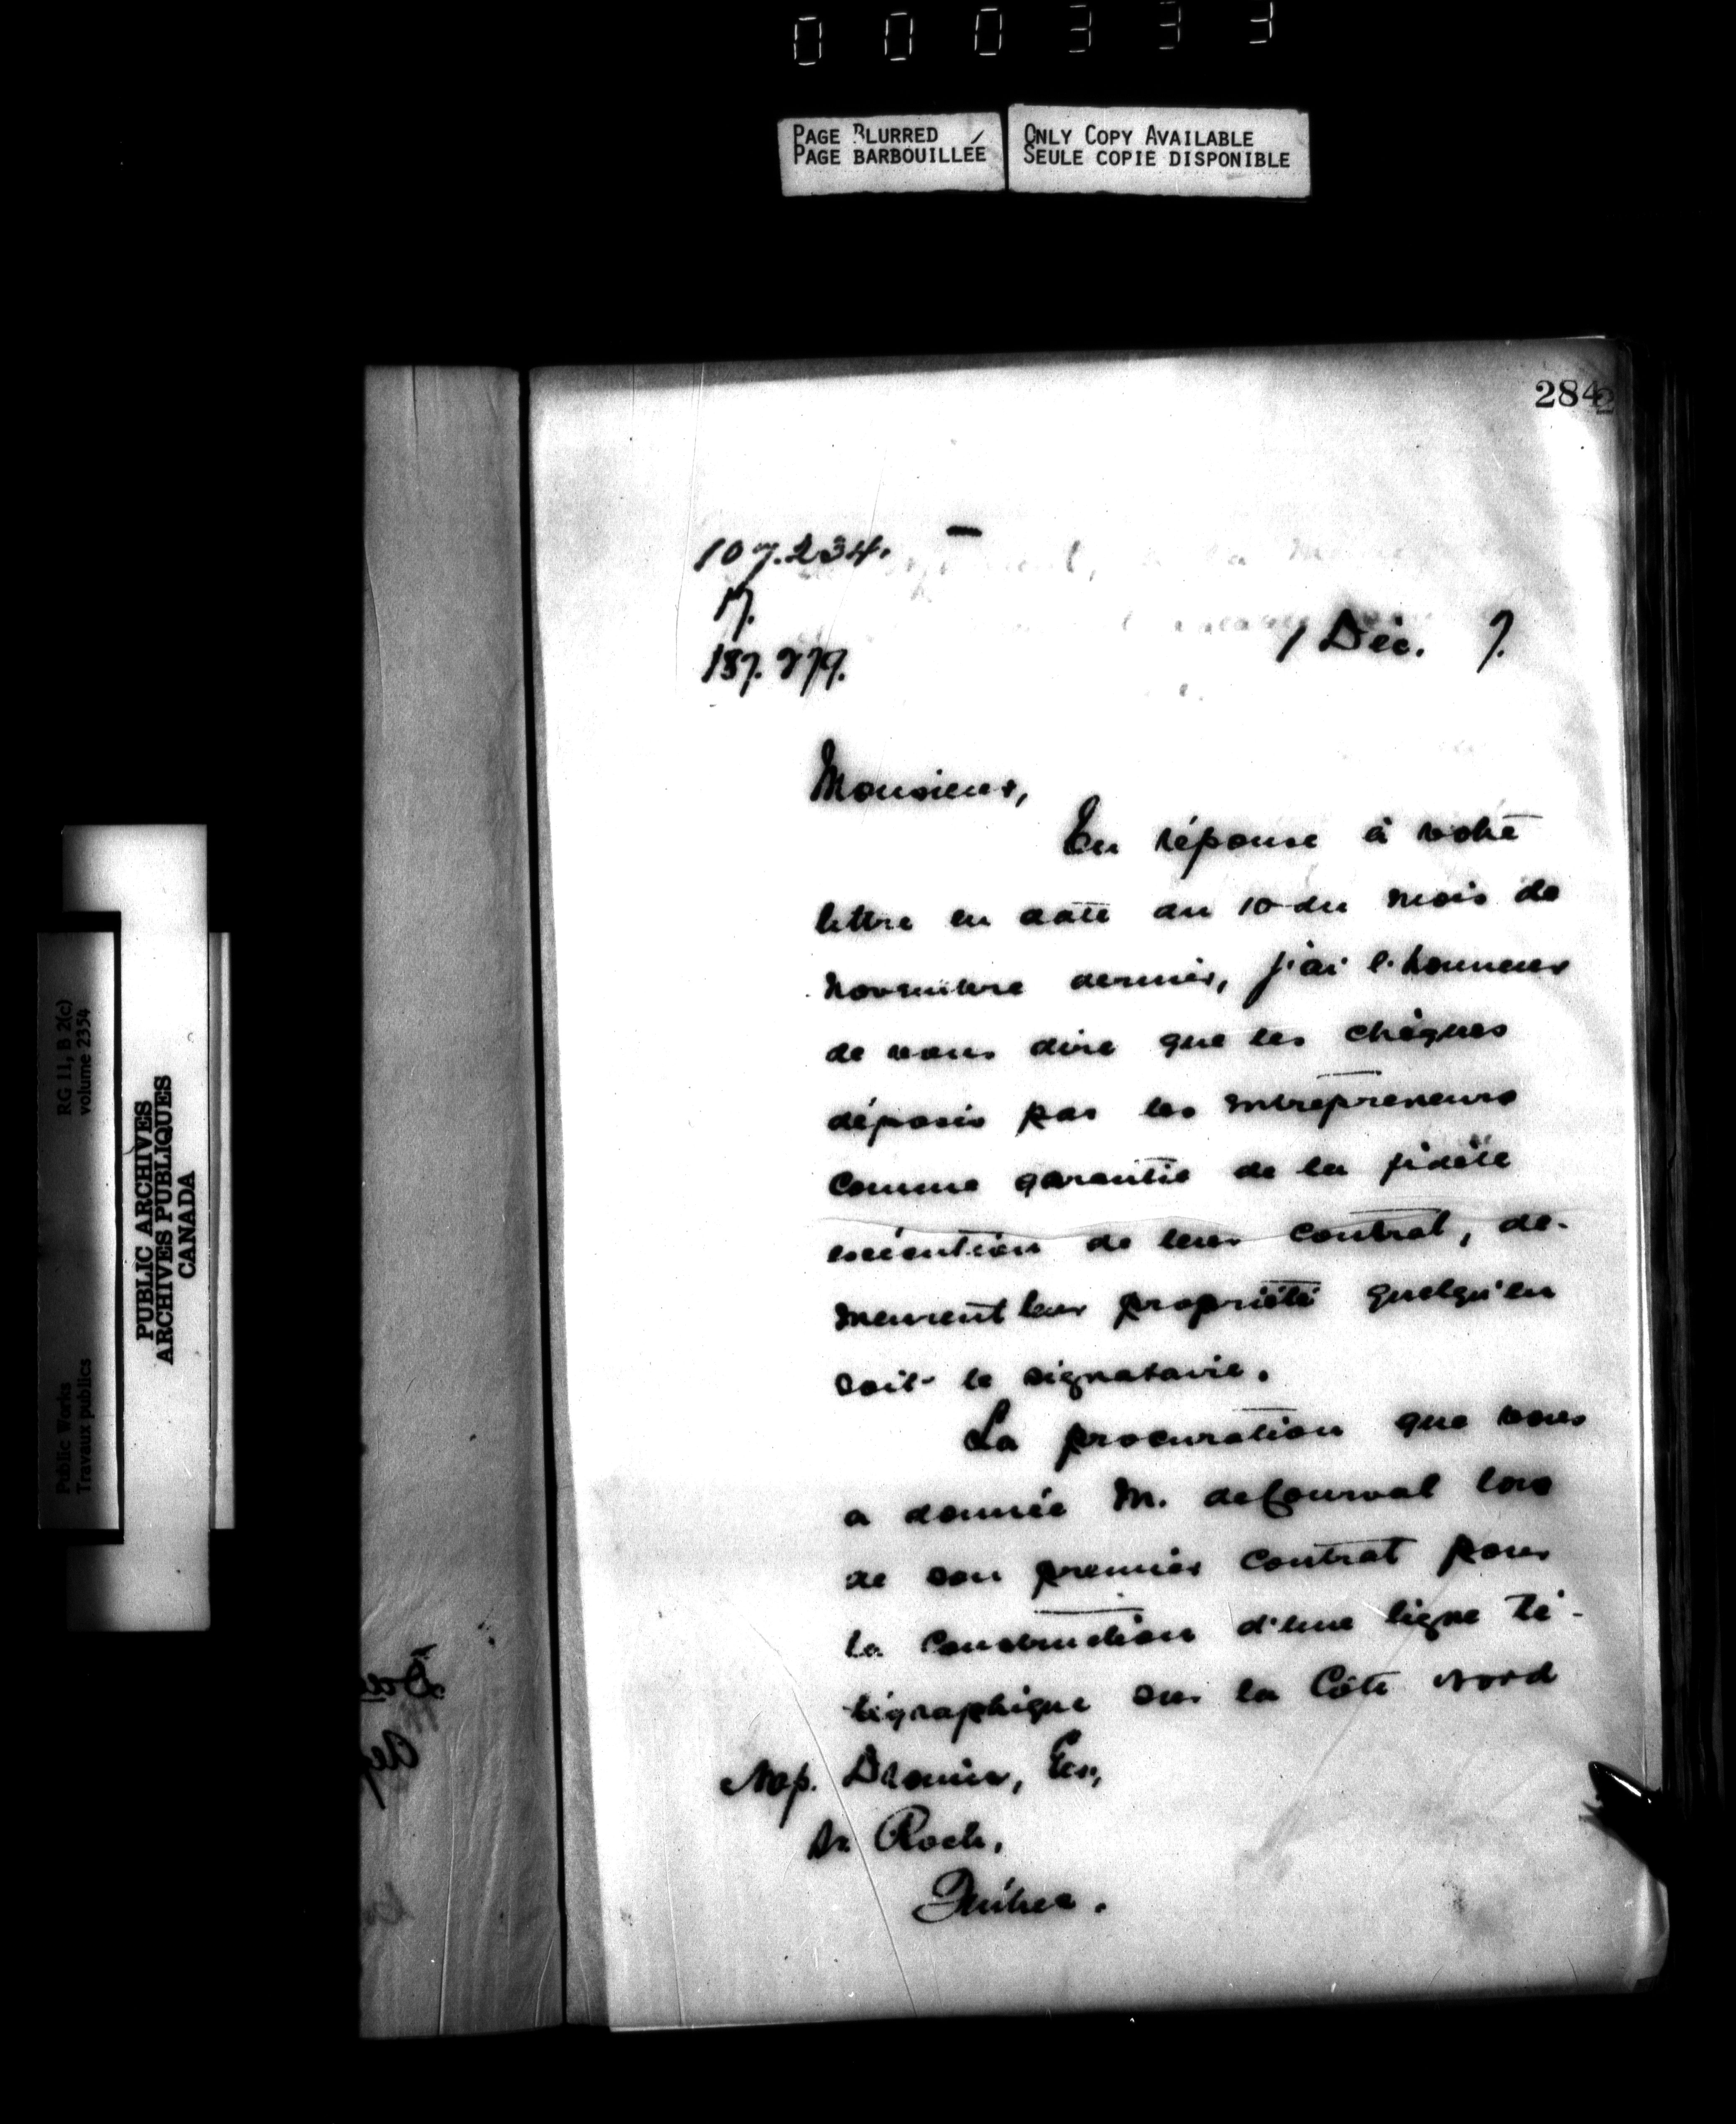 000333
PAGE BLURRED
PAGE BARBOUILLÉE
ONLY COPY AVAILABLE
SEULE COPIE DISPONIBLE
284
107.234.
17.
187.279.
1 Déc. 7.
Monsieur,
En réponse à votre
lettre en date du 10 du mois de
Novembre dernier, j'ai l'honneur
de vous dire que les chèques
déposés par les entrepreneurs
comme garantie de la fidèle
exécution de leur contrat, de-
meurent leur propriété quelqu'en
soit le signataire.
La procuration que vous
a donnée M. de Courval lors
de son premier contrat pour
la construction d'une ligne té-
légraphique sur la Côte Nord
Nap. Drouin, Ecr,
St. Roch,
Québec.
RG 11, B 2(c)
volume 2354
Public Works
Travaux publics
PUBLIC ARCHIVES
ARCHIVES PUBLIQUES
CANADA